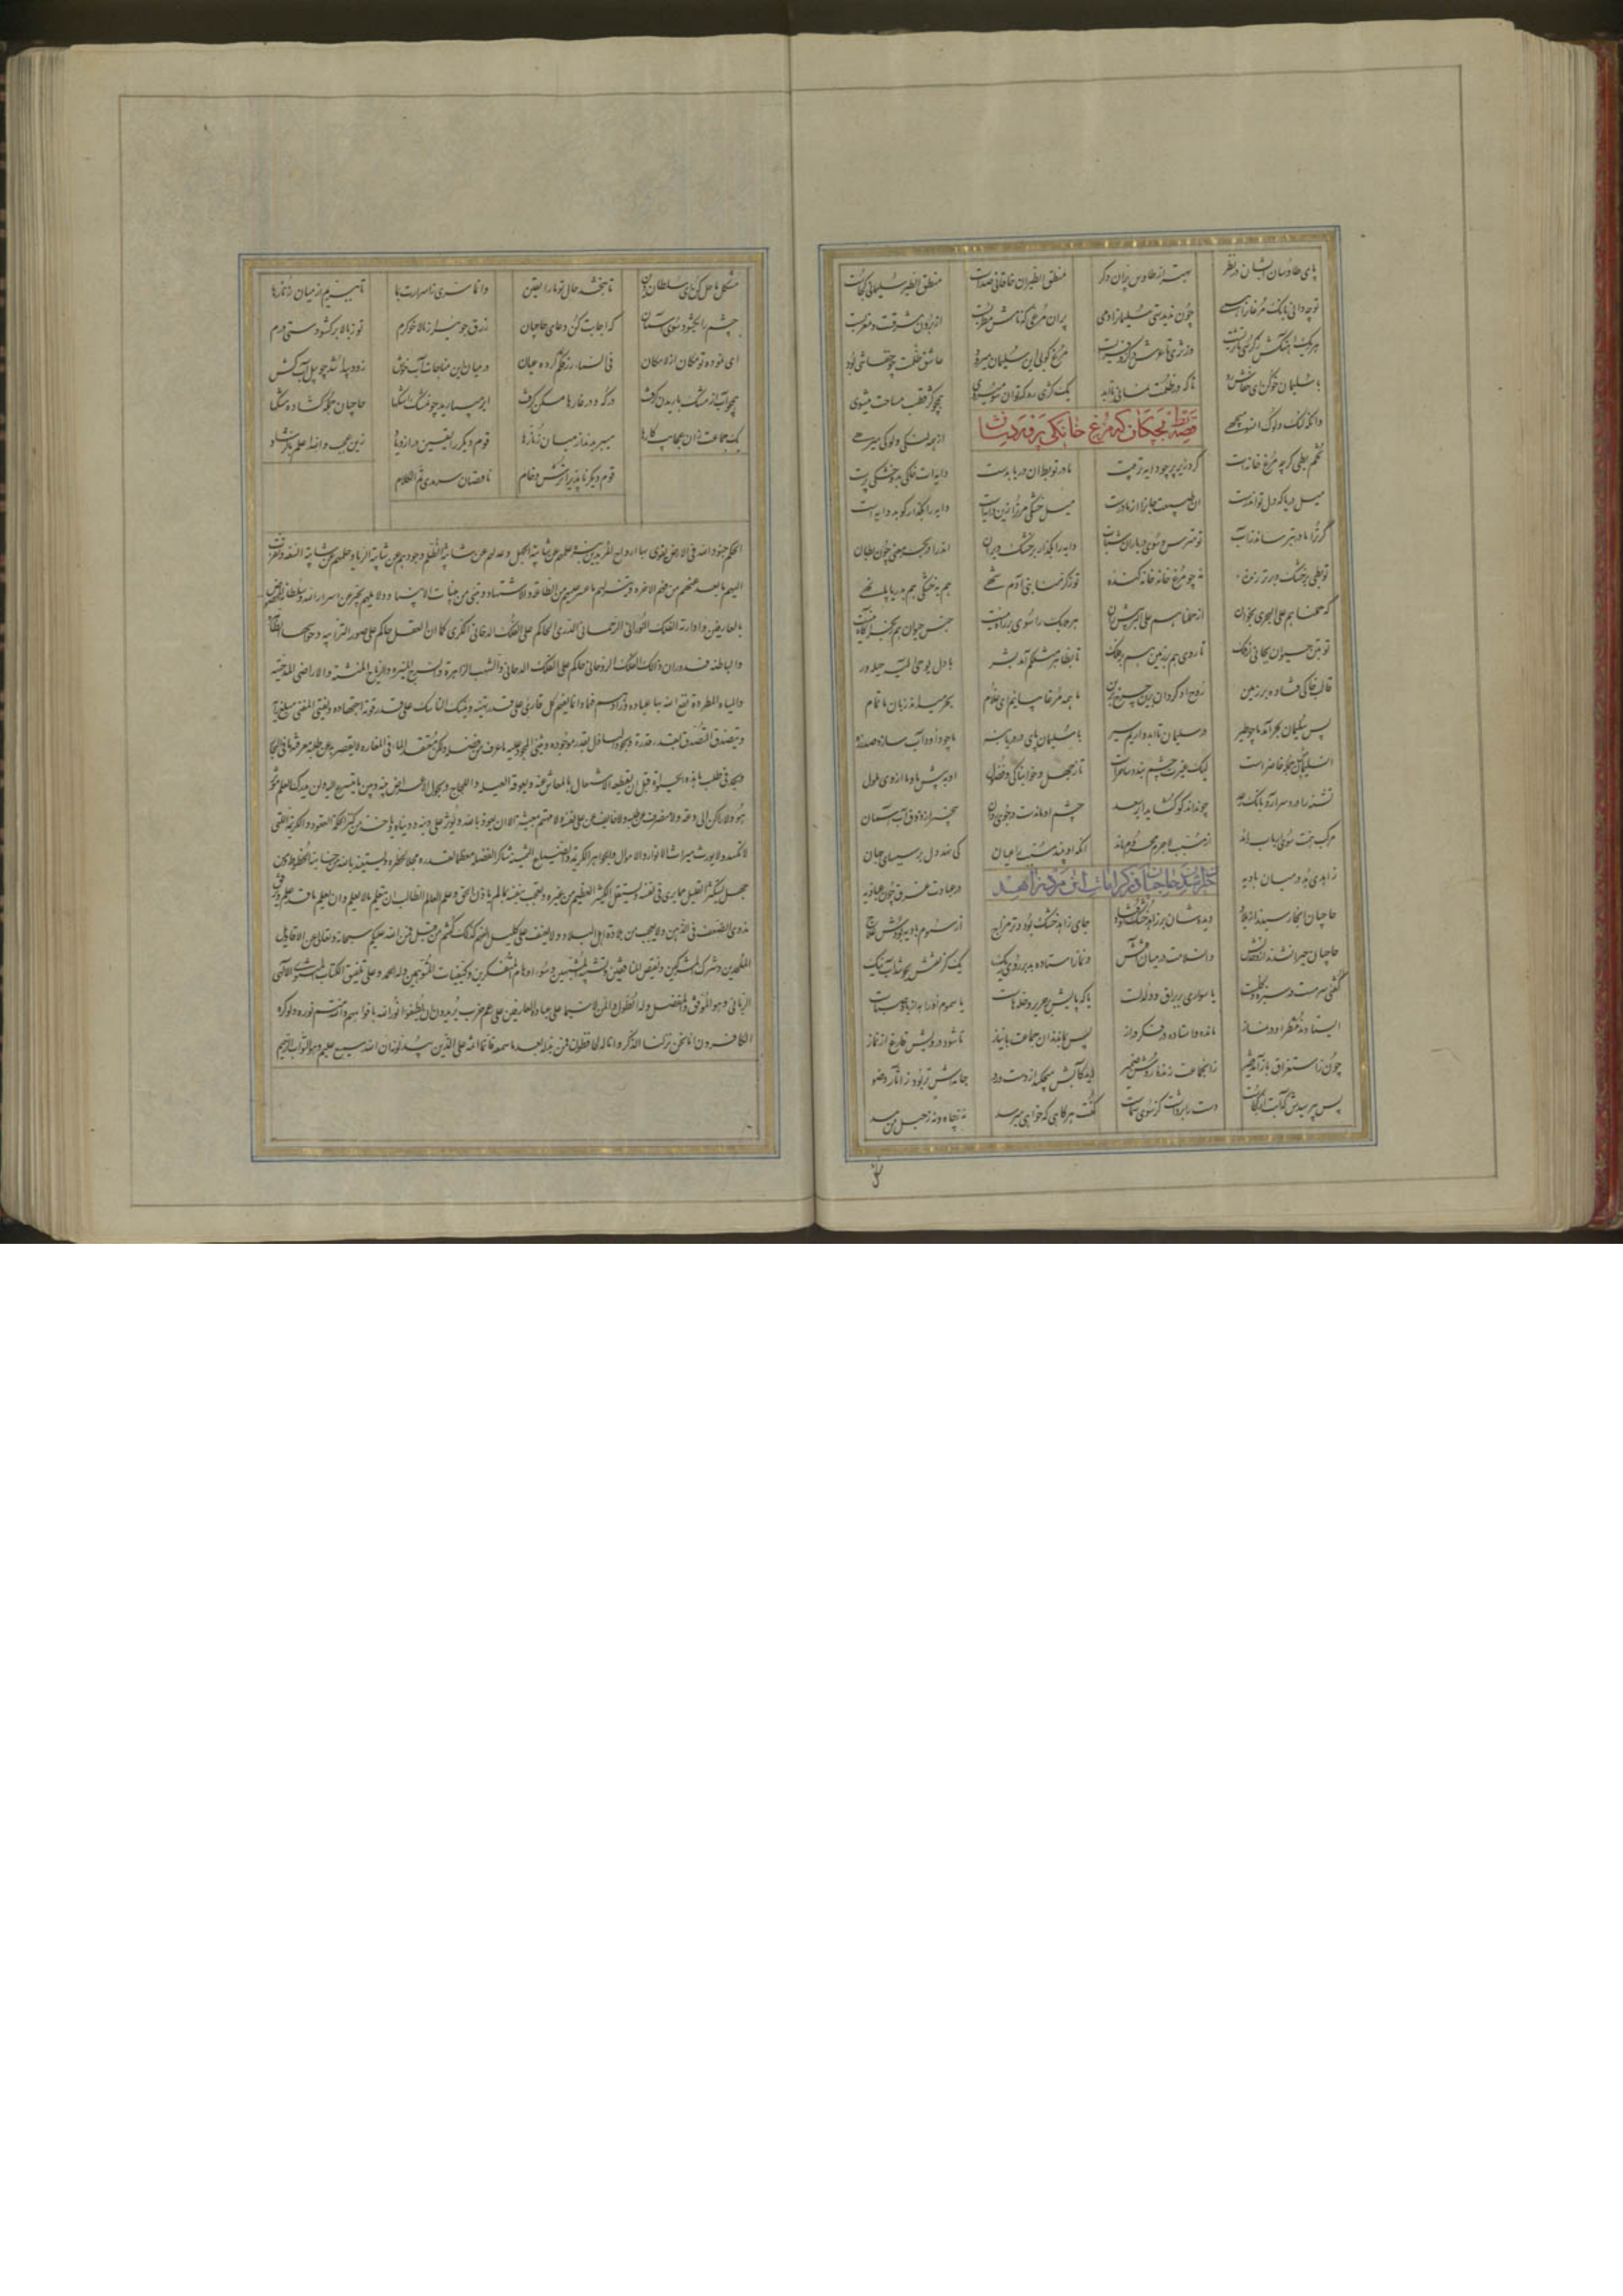 پای طاوسان ایشان در نظر بهتر از طاوس پران دگر منطق الطیران خاقانی صداست منطق الطیر سلیمانی کجاست
تو چه دانی بانک مرغانرا همی چون ندیدستی سلیمانرا دمی پر آن مرغی که بانکش مطربست از برون مشرقست و مغربست
هر یک آهنکش ز کرسی تا ثریست وز ثری تا عرش در کر و فریست مرغ کو بی این سلیمان میرود عاشق ظلمت چو خفاشی بود
با سلیمان خو کن ای خفاش رد تا که در ظلمت نمانی تا ابد یک کزی ره که بدان سو میروی همچو کز قطب مساحت میشوی
وانکه لنک و لوک آنسو میجهی از همه لنکی و لوکی میرهی
قصه بط بچکان که مرغ خانکی پروردشان
تخم بطی کرچه مرغ خانه‌ات کرد زیر پر چو دایه تربیت مادر تو بط آن دریا بدست دایه‌ات خاکی بد و خشکی پرست
میل دریا که دل تو اندرست آن طبیعت جانرا از مادرست میل خشکی مر ترا زین دایه‌است دایه را بکذار کو بد دایه است
دایه را بکذار بر خشک و بران اندر آ در بحر معنی چون بطان
کر ترا مادر بترساند ز آب تو مترس و سوی دریا ران شتاب
تو بطی بر خشک و بر تر زنده نه چو مرغ خانه خانه کنده تو ز کرمنا بنی آدم شهی هم به خشکی هم بدریا پا نهی
که حملناهم علی البحری بخوان از حملناهم علی البر پیش ران مر ملایک را سوی بر راه نیست جنس حیوان هم ز بحر آکاه نیست
تو بتن حیوان بجانی از ملک تا روی هم بر زمین هم بر فلک تا بظاهر مثلکم باشد بشر با دل یوحی الیه دیده‌ور
قالب خاکی فتاده بر زمین روح او کردان برین چرخ برین ما همه مرغابیانیم ای غلام بحر میداند زبان ما تمام
پس سلیمان بحر آمد ما چو طیر در سلیمان تا ابد داریم سیر با سلیمان پای در دریا بنه تا چو داود آب سازد صد زره
آن سلیمان پیش جمله حاضر است لیک غیرت چشم بند و ساحرست تا ز جهل و خوابناکی و فضول او به پیش ما و ما از وی ملول
تشنه را درد سر آرد بانک رعد چون نداند کو کشاید ابر سعد چشم او ماندست در جوی روان بیخبر از ذوق آب آسمان
مرکب همت سوی اسباب راند از مسبب لاجرم محروم ماند آنکه او بیند مسبب را عیان کی نهد دل بر سببهای جهان
حیران شدن حاجیان در کرامات آن مرد زاهد
زاهدی بد در میان بادیه در عبادت غرق چون عبادیه
حاجیان آنجا رسیدند از بلاد دیده‌شان بر زاهد خشک اوفتاد جای زاهد خشک بود و تر مزاج از سموم بادیه بودش علاج
حاجیان حیران شدند از وحدتش وان سلامت در میان آفتش در نماز استاده بد بر روی ریک ریک کز تفش بجوشد آب دیک
کفتی سرمست در سبزه و کلست یا سواره بر براق و دلدلست یا که پایش بر حریر و حله‌هاست یا سموم او را به از باد صباست
ایستادند منتظر او در نماز مانده و استاده در فکر دراز پس بماندند آن جماعت با نیاز تا شود درویش فارغ از نماز
چون ز استغراق باز آمد فقیر زان جماعت زنده روشن ضمیر دید کآبش میچکید از دست و رو جامه‌اش تر بود ز آثار وضو
پس بپرسیدش که آبت از کجاست دست را برداشت کز سوی سماست کفت هر کاهی که خواهی میرسد نه ز چاه و نه ز حبل من مسد
مشکل ما حل کن ای سلطان دین تا ببخشد حال تو ما را یقین وانما سری ز اسرارت بما تا ببریم از میان زنارها
چشم را بکشود سوی آسمان که اجابت کن دعای حاجیان رزق جویی را ز بالا خوکرم تو ز بالا برکشودستی درم
ای نموده تو مکان از لامکان فی السماء رزقکم کرده عیان در میان این مناجات ابر خوش زود پیدا شد چو پیل آب کش
همچو آب از مشک باریدن کرفت در کو و در غارها مسکن کرفت ابر میبارید چو مشک اشکها حاجیان جمله کشاده مشکها
یک جماعت زان عجایب کارها میبریدند از میان زنارها قوم دیکر را یقین در ازدیاد زین عجب والله اعلم بالرشاد
قوم دیکر ناپذیرا ترش و خام ناقصان سرمدی تم الکلام
الحکم جنود الله فی الارض یقوی بها ارواح المریدین ینزه علمهم عن شائبة الجهل و عدلهم عن شائبة الظلم وجودهم عن شائبة الریاء و حلمهم عن شائبة السفه و یقرب
الیهم ما بعد عنهم من فهم الآخره و ییسر لهم ما عسر علیهم من الطاعة والاجتهاد و هی من بینات الانبیاء و دلایلهم تخبر عن اسرار الله و سلطانه المخصوص
بالعارفین و ادارته الفلک النورانی الرحمانی الدری الحاکم علی الفلک الدخانی الکری کما ان العقل حاکم علی صور الترابیه و حواسها الظاهرة
والباطنه فدوران ذلک الفلک الروحانی حاکم علی الفلک الدخانی والشهب الزاهره والسرج المنیره والریاح المنشئة والاراضی المدحیه
والمیاه المطرده نفع الله بها عباده و زادهم فهما و انما یفهم کل قارئ علی قدر نهیته و ینسک الناسک علی قدر قوة اجتهاده و یفتی المفتی مبلغ رأیه
و یتصدق المتصدق بقدر قدرته و یجود الباذل بقدر موجوده و یقتنی المجود علیه ما عرف من فضله ولکن مفتقد الماء فی المفازه لا یقصر به عن طلبه معرفته ما فی البحار
و یجد فی طلب ماء هذه الحیوة قبل ان یقطعه الاشتغال بالمعاش عنه و یعوقه العلة والحاجة و یحول الاغراض بینه و بین ما یتسرع الیه ولن یدرک العلم مؤثر
هو ولا راکن الی دعة ولا منصرف عن طلبه ولا خائف علی نفسه ولا مهتم لمعیشته الا ان یعوذ بالله و یؤثر دینه علی دنیاه و یأخذ من کنز الحکمة
لا تکسد ولا یورث میراث الاموال والانوار الجلیله والجواهر الکریمة والضیاع الثمینه شاکرا لفضله معظما لقدره مجللا لخطره و یستعیذ بالله من خساسة الحظوظ و من
جهل یستکثر القلیل مما یری فی نفسه و یستقل الکثیر العظیم من غیره و یعجب بنفسه بما لم یأذن له الحق و علی العالم الطالب ان یتعلم ما لا یعلم و ان یعلم ما قد علم و یرفق
بذوی الضعف فی الذهن ولا یعجب من بلادة اهل البلاده ولا یعنف علی کلیل الفهم کذلک کنتم من قبل فمن الله علیکم سبحانه و تعالی عن اقاویل
الملحدین و شرک المشرکین و تنقیص الناقصین و تشبیه المشبهین و سوء اوهام المتفکرین و کیفیات المتوهمین و له الحمد و علی تلفیق الکتاب المثنوی الالهی
الربانی و هو الموفق والمتفضل و له الطول والمن لا سیما علی عباده العارفین علی رغم حزب یریدون ان یطفئوا نور الله بافواههم والله متم نوره ولو کره
الکافرون انا نحن نزلنا الذکر و انا له لحافظون فمن بدله بعد ما سمعه فانما اثمه علی الذین یبدلونه ان الله سمیع علیم